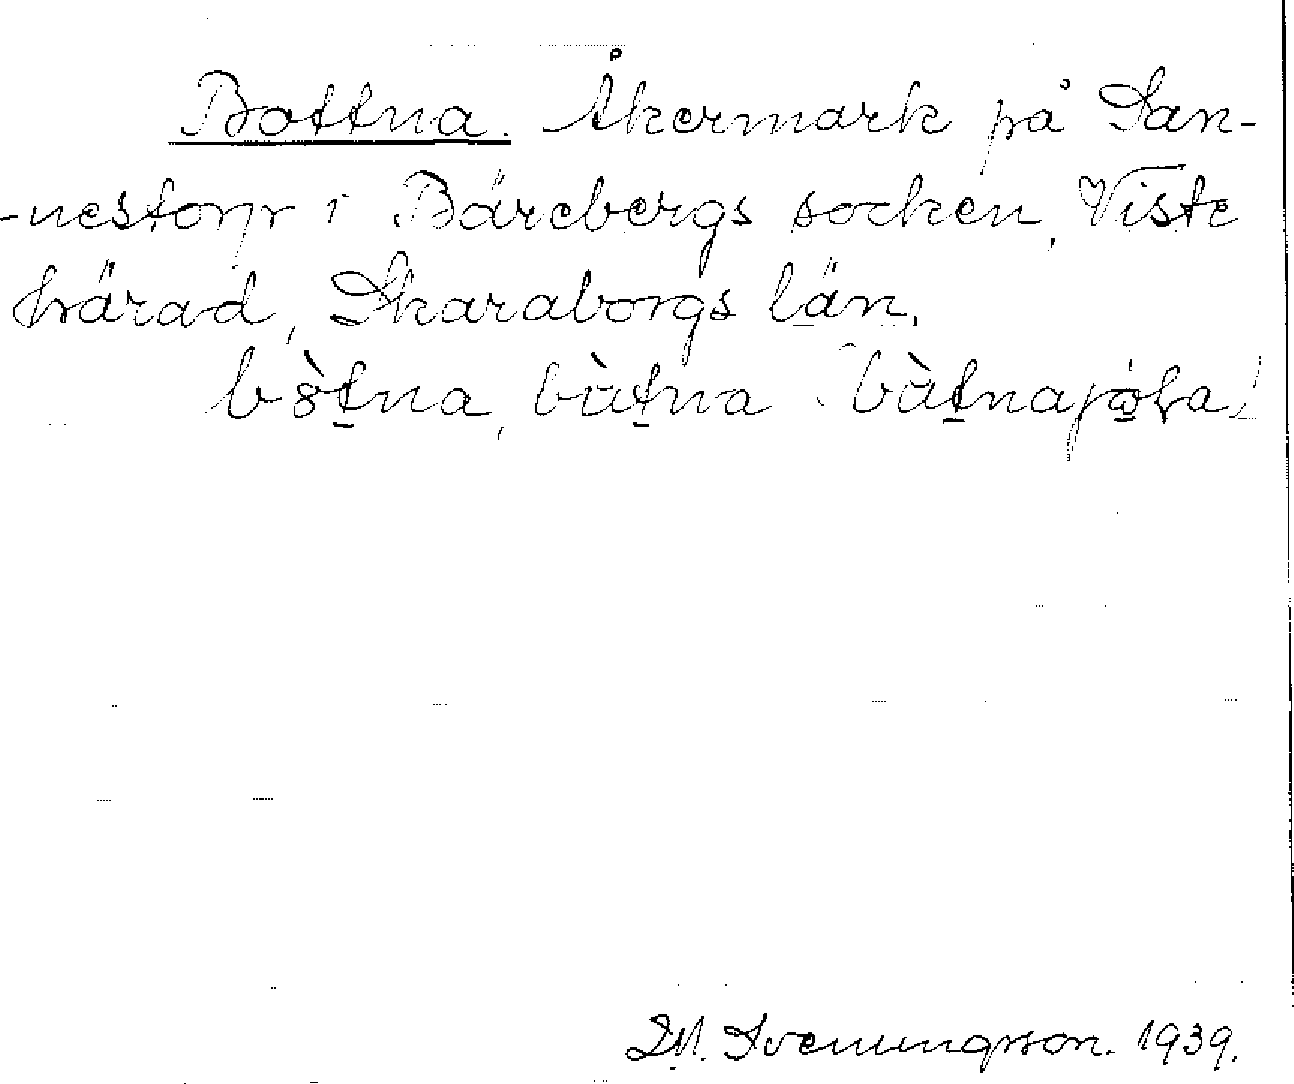 Bottna. Åkermark på San-
-nestorp i Bärebergs socken, Viste
härad, Skaraborgs län.
bòtna, bùtna
Svenungsson. 1939.